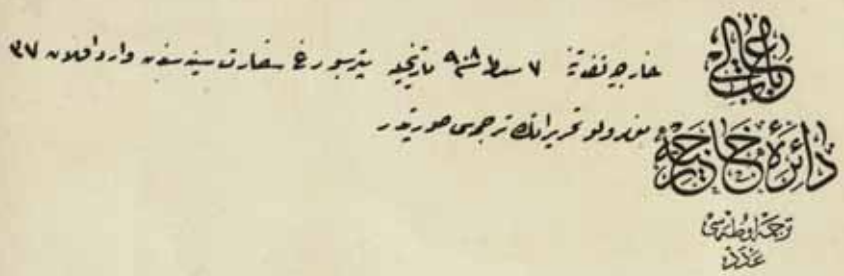 باب عالی
دائرهٔ خارجیه
ترجمه اوطه‌سی
عدد
خارجیه نظارتنه ٧ شباط سنه ٩٨ تاریخیله پترسبورغ سفارت سنیه‌سندن وارد اولان ٣٧
نومرولو تحریراتك ترجمه‌سی صورتیدر